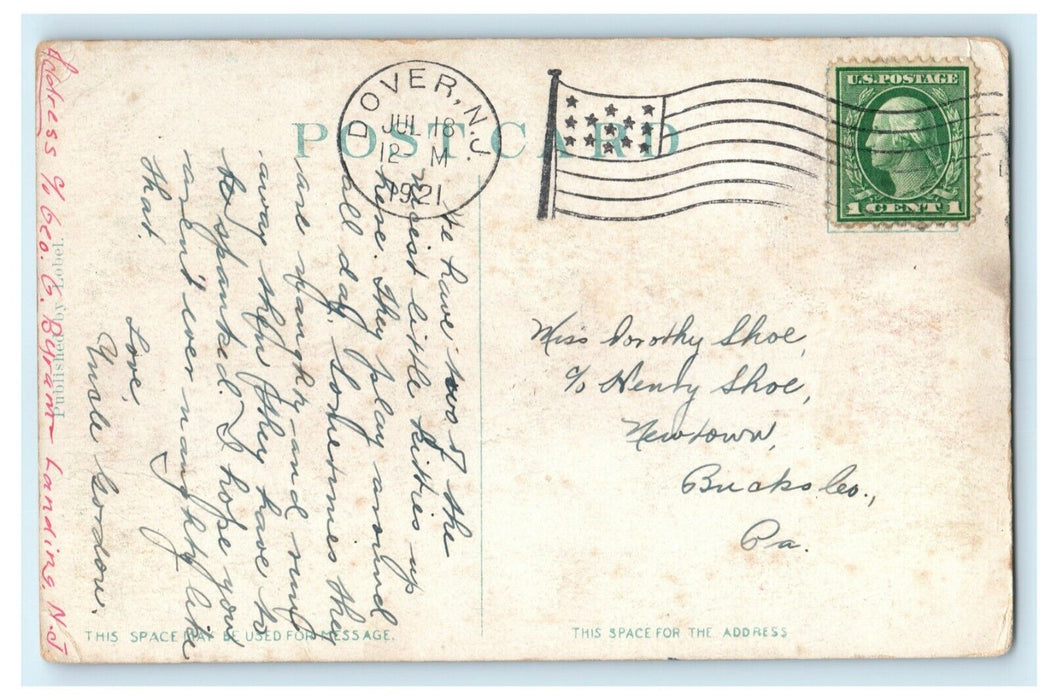 POST CARD
DOVER, N.J.
JUL 18
12 M
1921
U.S. POSTAGE
1 CENT 1
We have two of the
nicest little kitties up
here. They play around
all day. Sometimes they
are naughty and run
away then they have to
be spanked. I hope you
aren't ever naughty like
that.
Love,
Uncle Gordon.
Miss Dorothy Shoe,
c/o Henry Shoe,
Newtown,
Bucks Co.,
Pa.
Address c/o Geo. G. Byram Landing, N.J
Published by Lobel
THIS SPACE MAY BE USED FOR MESSAGE.
THIS SPACE FOR THE ADDRESS